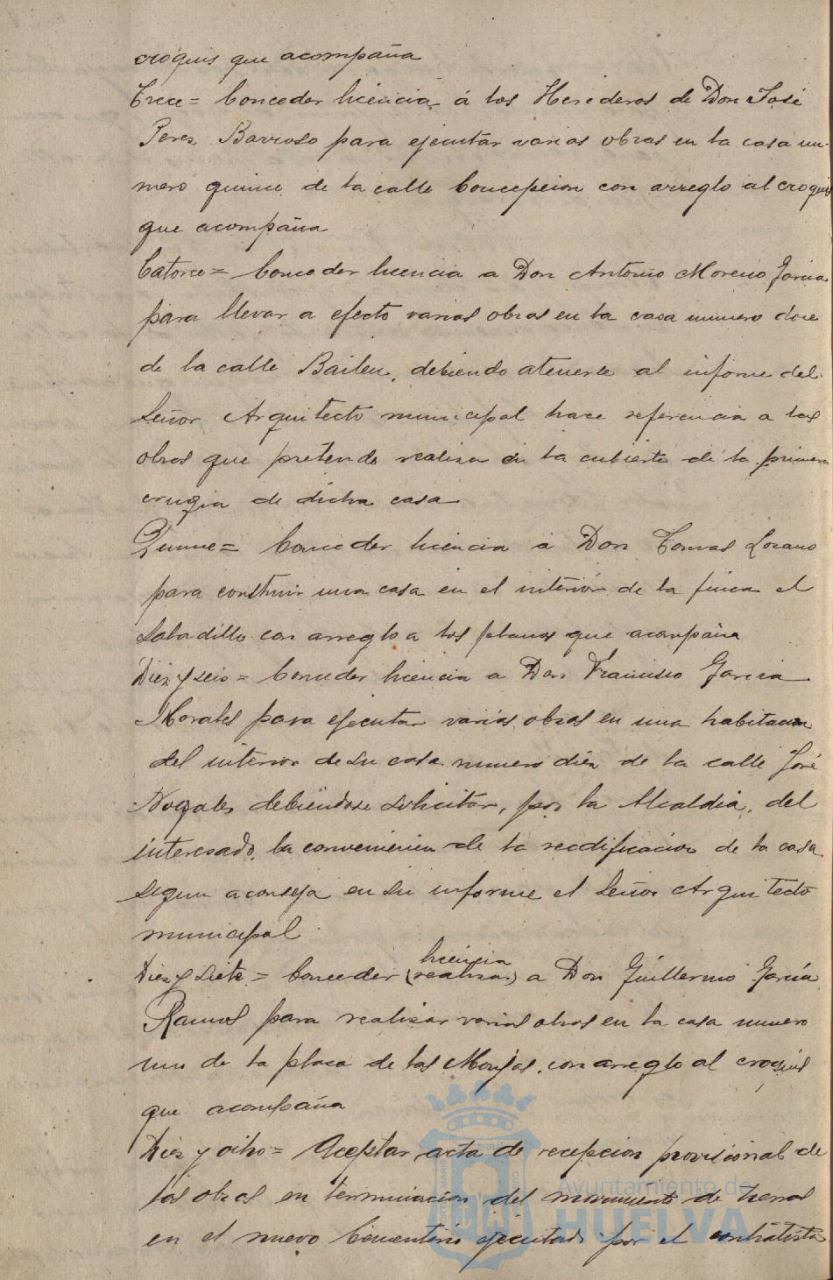 croquis que acompaña
Trece = Conceder licencia á los Herederos de Don José
Perez Barroso para ejecutar varias obras en la casa nu-
mero quince de la calle Concepcion con arreglo al croquis
que acompaña
Catorce = Conceder licencia a Don Antonio Moreno Garcia
para llevar a efecto varias obras en la casa numero doce
de la calle Bailen, debiendo atenerse al informe del
Señor Arquitecto municipal hace referencia a las
obras que pretende realizar en la cubierta de la primera
crugia de dicha casa
Quince = Conceder licencia a Don Tomas Lozano
para construir una casa en el interior de la finca el
Saladillo con arreglo a los planos que acompaña
Diez y seis = Conceder licencia a Don Francisco Garcia
Morales para ejecutar varias obras en una habitacion
del interior de su casa numero diez de la calle José
Nogales debiendose solicitar, por la Alcaldia, del
interesado, la conveniencia de la reedificacion de la casa
segun aconseja en su informe el Señor Arquitecto
municipal
licencia
Diez y siete = Conceder (realizar) a Don Guillermo García
Ramos para realizar varias obras en la casa numero
uno de la plaza de las Monjas, con arreglo al croquis
que acompaña
Diez y ocho = Aceptar acta de recepcion provisional de
las obras en terminacion del movimiento de tierras
en el nuevo Cementerio ejecutado por el contratista
Ayuntamiento de
HUELVA